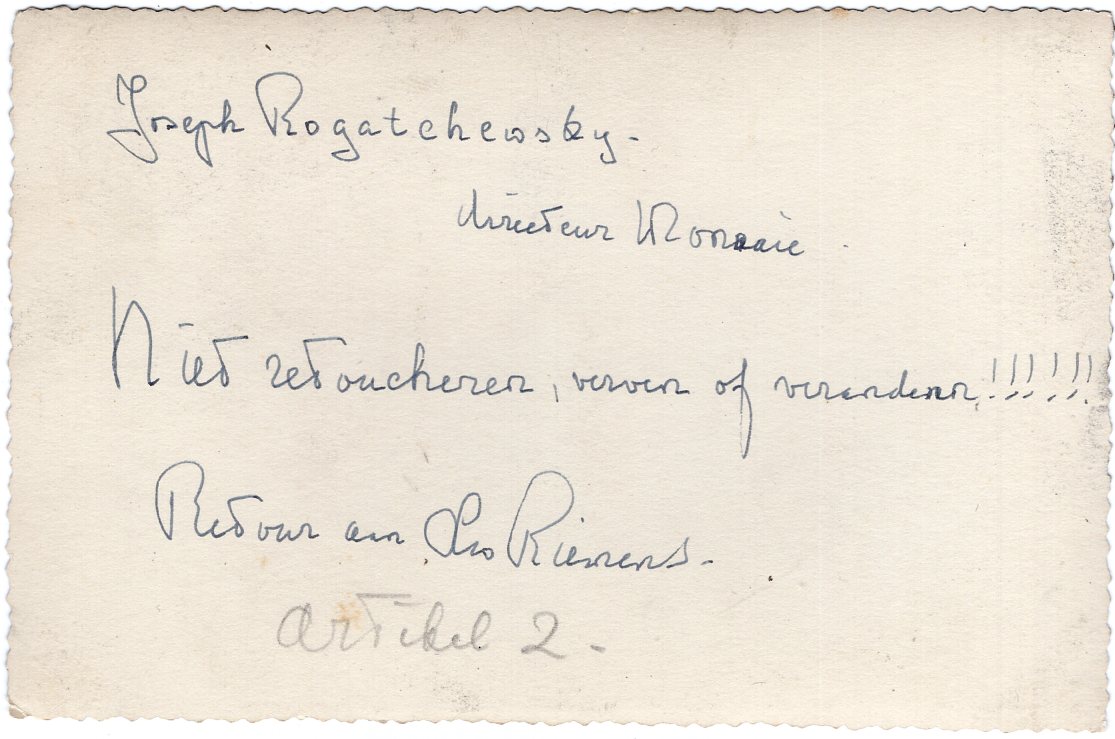 Joseph Rogatchewsky.
directeur Monnaie.
Niet retoucheren, verven of veranderen!!!!!!
Retour aan Leo Riemens.
Artikel 2.